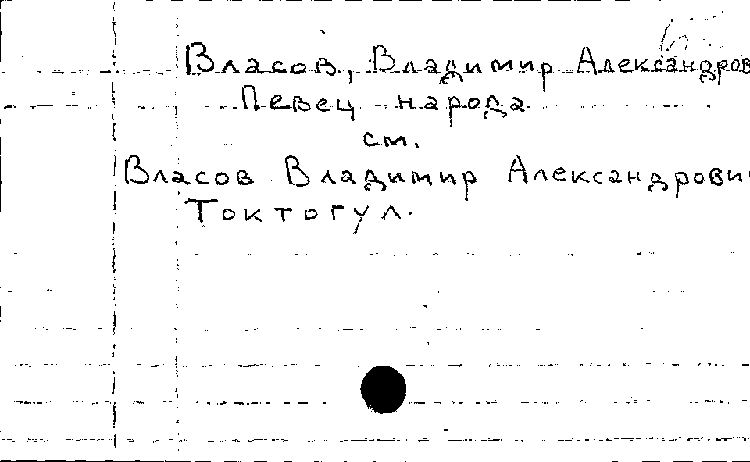 Власов, Владимир Александров
Певец народа
см.
Власов Владимир Александрови
Токтогул.